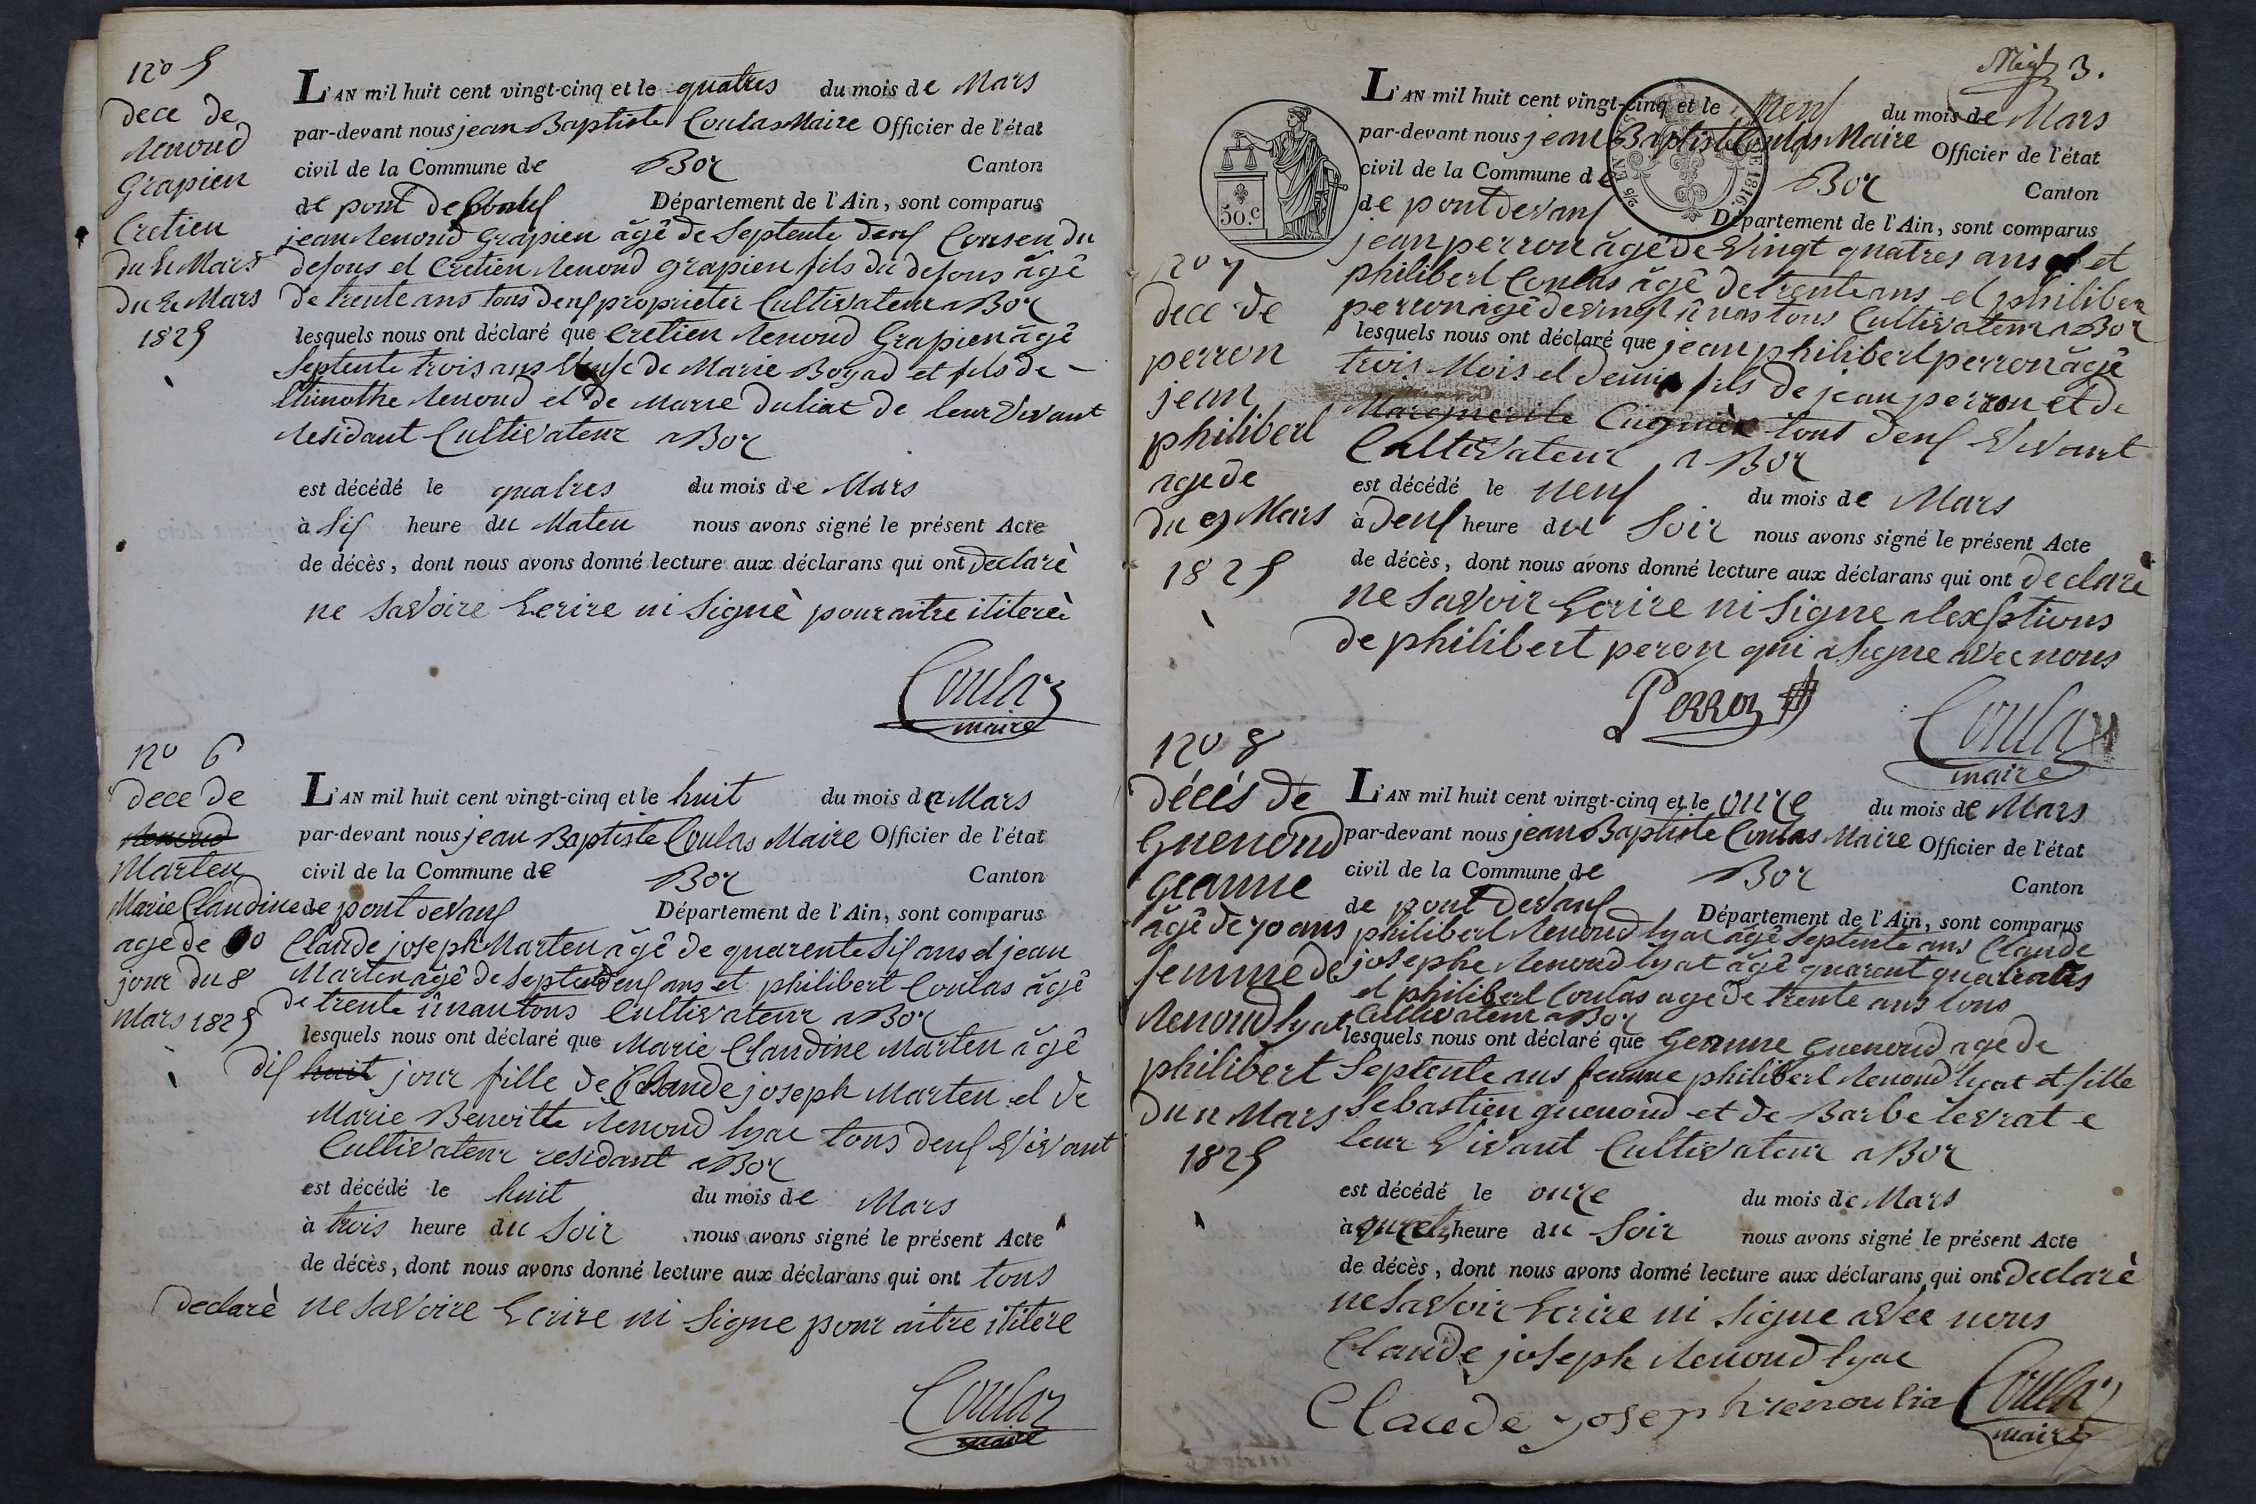 no 5
dece de
Renoud
Grapien
Cretien
du 4 Mars
du 4 Mars
1825
L'AN mil huit cent vingt-cinq et le quatres du mois de Mars
par-devant nous jean Baptiste Coulas Maire Officier de l'état
civil de la Commune de Bor Canton
de pont de Département de l'Ain, sont comparus
jean Renoud Grapien âgê de Septente deux Cousen du
defous et Cretien Renoud grapien fils du defous âgê
de trente ans tous deux proprieter Cultivateur a Bor
lesquels nous ont déclaré que Cretien Renoud Grapien âgê
Septente trois ans de Marie Boyad et fils de
thimothe Renoud et de Marie duliat de leur Vivant
Residant Cultivateur a Bor
est décédé le quatres du mois de Mars
à Six heure du Maten nous avons signé le présent Acte
de décès, dont nous avons donné lecture aux déclarans qui ont declarè
ne Savoire Ecrire ni Signè pour aitre ilitere
Coulas
maire
no 6
dece de
Renoud
Marten
Marie Claudine
age de 10
jour du 8
Mars 1825
L'AN mil huit cent vingt-cinq et le huit du mois de Mars
par-devant nous jean Baptiste Coulas Maire Officier de l'état
civil de la Commune de Bor Canton
de pont devaux Département de l'Ain, sont comparus
Claude joseph Marten âgê de quarente Six ans et jean
Marten âgê de Septente deux ans et philibert Coulas âgê
de trente ûn an tous Cultivateur a Bor
lesquels nous ont déclaré que Marie Claudine Marten âgê
dix huit jour fille de Claude joseph Marten et de
Marie Benoitte Renoud lyac tous deux Vivant
Cultivateur residant a Bor
est décédé le huit du mois de Mars
à trois heure du Soir nous avons signé le présent Acte
de décès, dont nous avons donné lecture aux déclarans qui ont tous
declarè ne Savoire Ecrire ni Signe pour aitre ilitere
Coulas
maire
3.
50.c
1816.
L'AN mil huit cent vingt-cinq et le Neuf du mois de Mars
par-devant nous jean Baptiste Coulas Maire Officier de l'état
civil de la Commune de Bor Canton
de pont devaux Département de l'Ain, sont comparus
no 7
dece de
perron
jean
philibert
age de
du 9 Mars
1825
jean perron âgê de Vingt quatres ans et
philibert Coulas âgê de trente ans et philiber
perron âgê de vingt û nas tous Cultivateur a Bor
lesquels nous ont déclaré que jean philibert perron âgê
trois Mois et demi fils de jean perron et de
Marguerite tous deux Vivant
Cultivateur a Bor
est décédé le neuf du mois de Mars
à deux heure du Soir nous avons signé le présent Acte
de décès, dont nous avons donné lecture aux déclarans qui ont declare
ne Savoir Ecrire ni Signe alexsptions
de philibert peron qui a Signe avec nous
Perron
Coulas
maire
no 8
décés de
Guenoud
geanne
âgê de 70 ans
femme de
Renoud lyat
philibert
du 11 Mars
1825
L'AN mil huit cent vingt-cinq et le onze du mois de Mars
par-devant nous jean Baptiste Coulas Maire Officier de l'état
civil de la Commune de Bor Canton
de pont devaux Département de l'Ain, sont comparus
philibert Renoud lyac âgê Septente ans Claude
josephe Renoud lyat âgê quarent quatre
et philibert Coulas age de trente ans tous
Cultivateur a Bor
lesquels nous ont déclaré que Geanne Guenoud age de
Septente ans femme philibert Renoud lyat et fille
Sebastien guenoud et de Barbe levrat e
leur Vivant Cultivateur a Bor
est décédé le onze du mois de Mars
à heure du Soir nous avons signé le présent Acte
de décès, dont nous avons donné lecture aux déclarans qui ont declarè
ne Savoir Ecrire ni Signe avec nous
Claude joseph Renoud lyac
Claude joseph renoulia
Coulas
maire